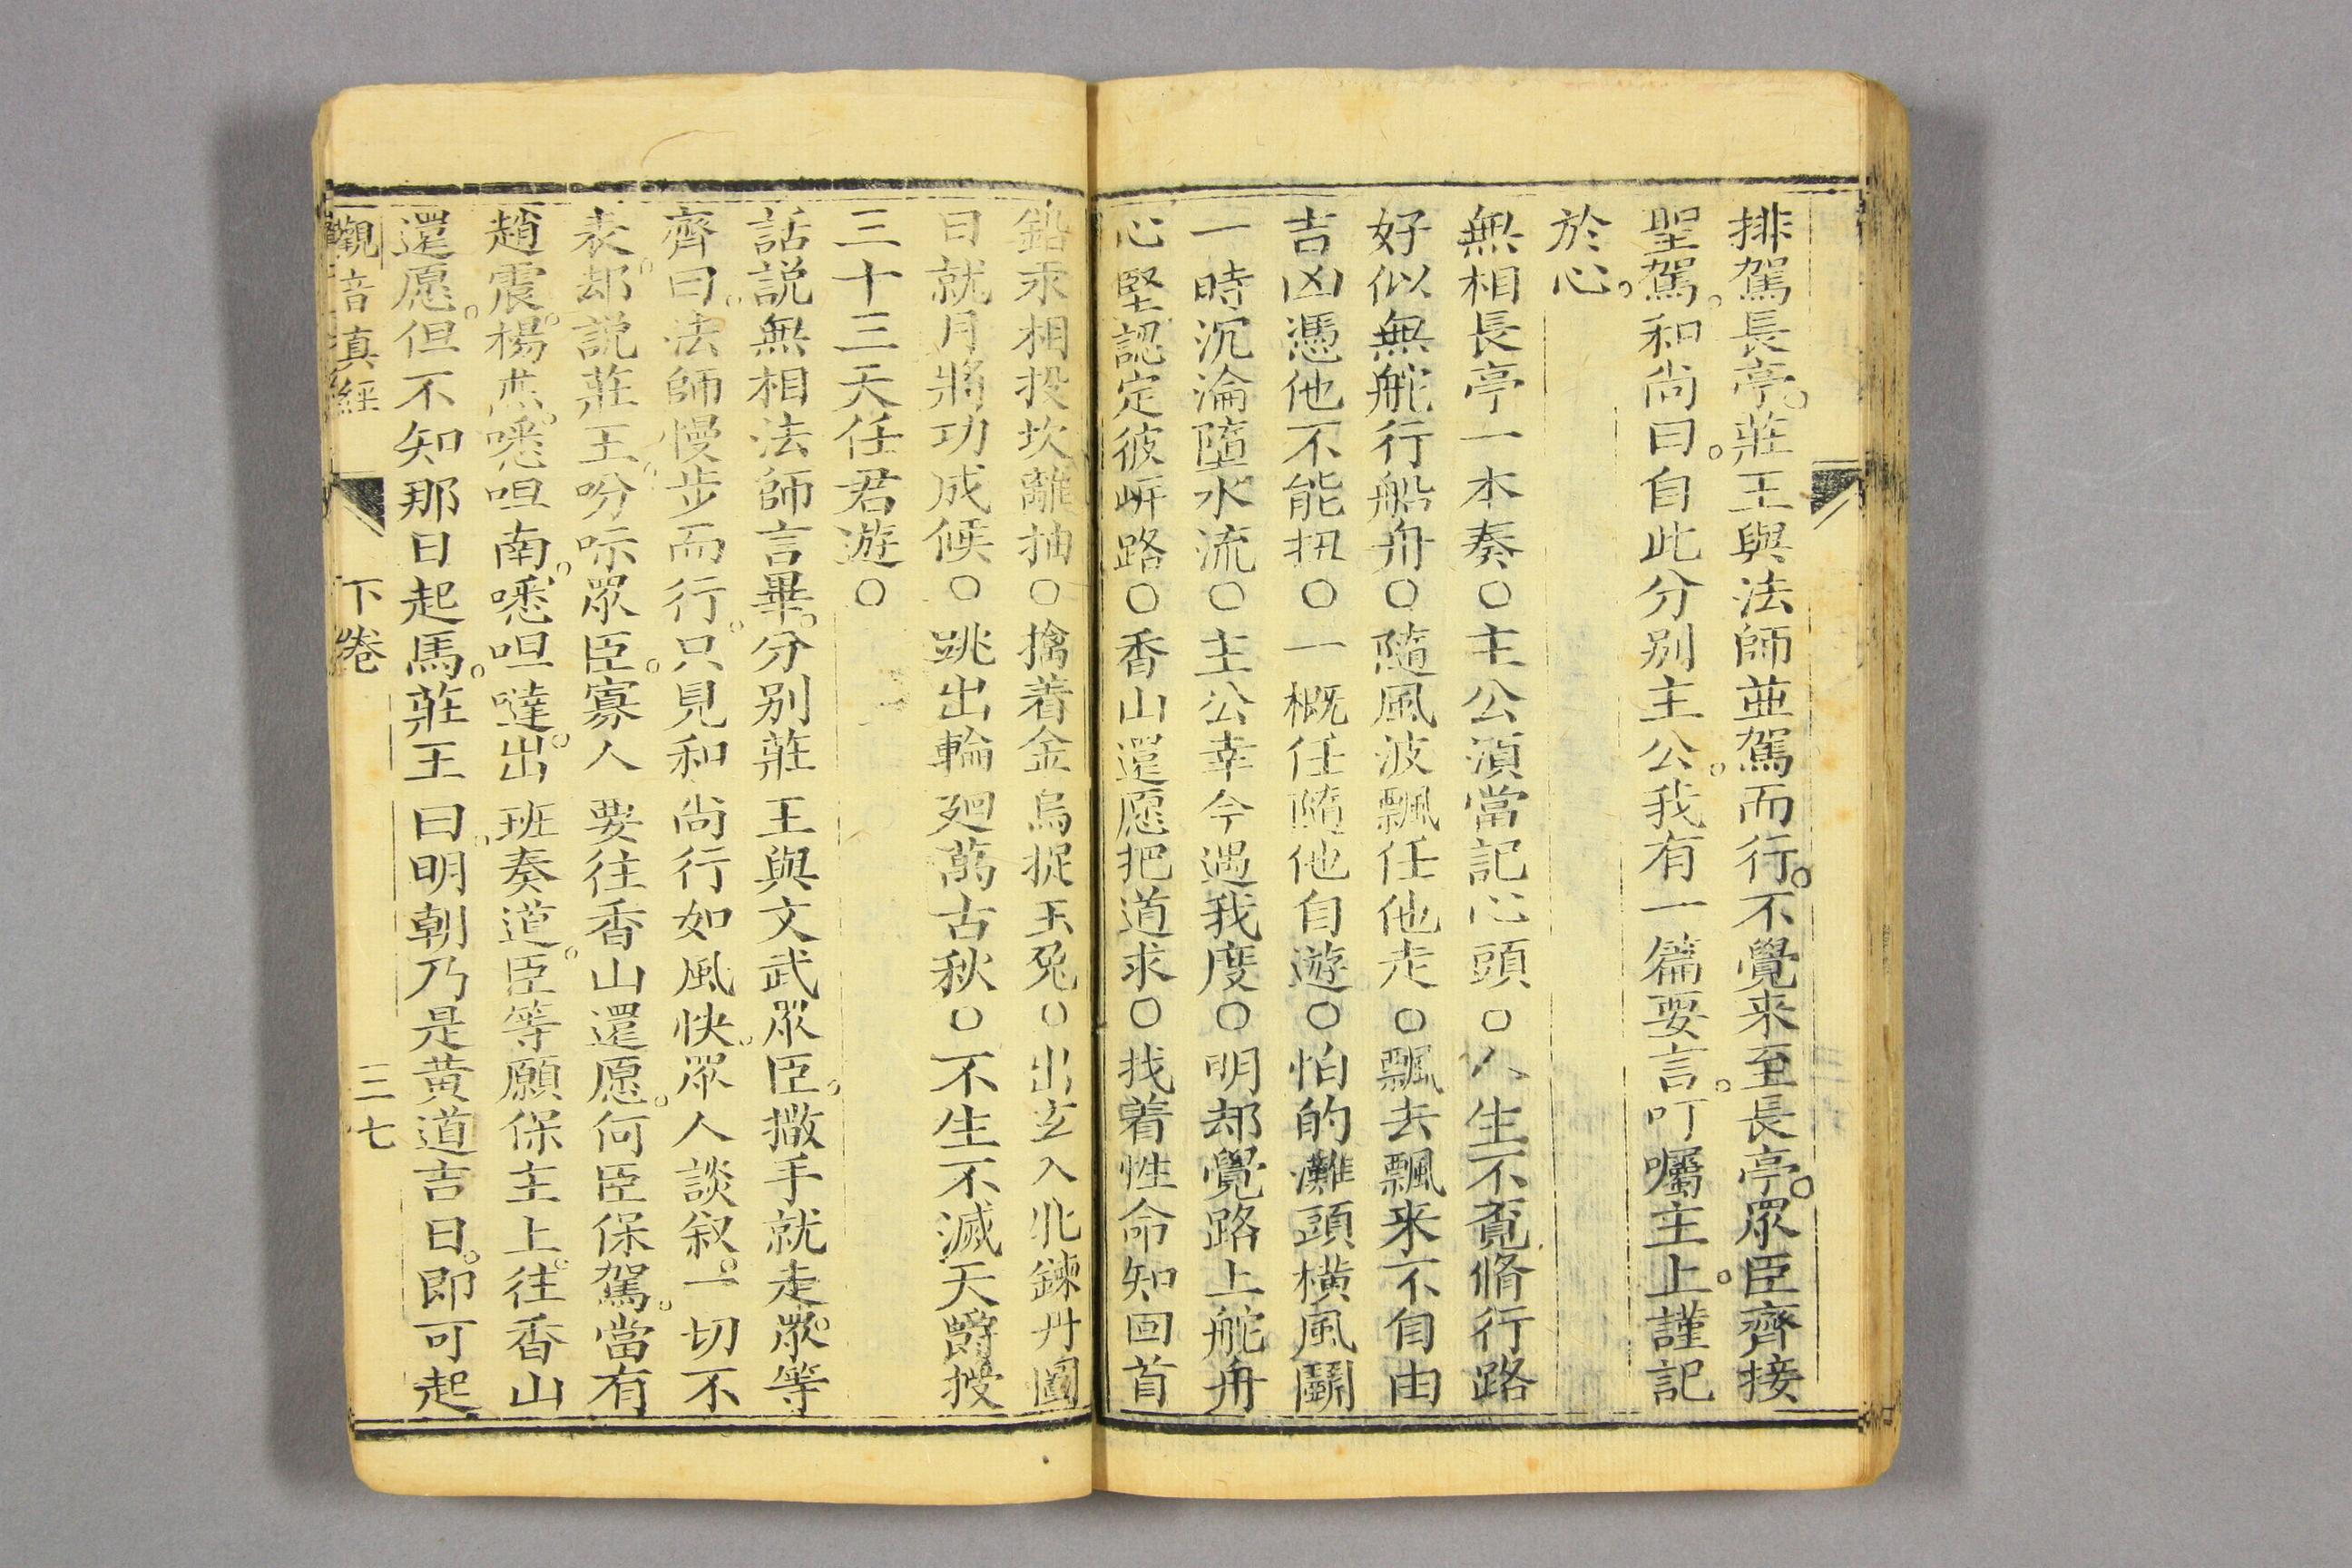 排駕長亭。莊王與法師並駕而行。不覺来至長亭。眾臣齊接
聖駕。和尚曰。自此分别主公。我有一篇要言。叮囑主上。謹記
於心。
無相長亭一本奏○主公須當記心頭○人生不覓脩行路
好似無舵行船舟○隨風波飄任他走○飄去飄来不自由
吉凶憑他不能扭○一概任隨他自遊○怕的灘頭橫風鬬
一時沉淪墮水流○主公幸今遇我度○明却覺路上舵舟
心堅認定彼岍路○香山還愿把道求○找着性命知回首
鉛汞相投坎離抽○擒着金烏捉玉兔○出玄入牝鍊丹國
日就月將功成候○跳出輪廻萬古秋○不生不滅天爵授
三十三天任君遊○
話説無相法師言畢。分别莊王與文武眾臣。撒手就走。眾等
齊曰。法師慢步而行。只見和尚行如風快。眾人談叙。一切不
表。却説莊王吩咐眾臣。寡人要往香山還愿。何臣保駕。當有
趙震。楊杰。㗭呾南。㗭呾噠。出班奏道。臣等願保主上。往香山
還愿。但不知那日起馬。莊王曰。明朝乃是黄道吉日。即可起
觀音真經 下卷 三七